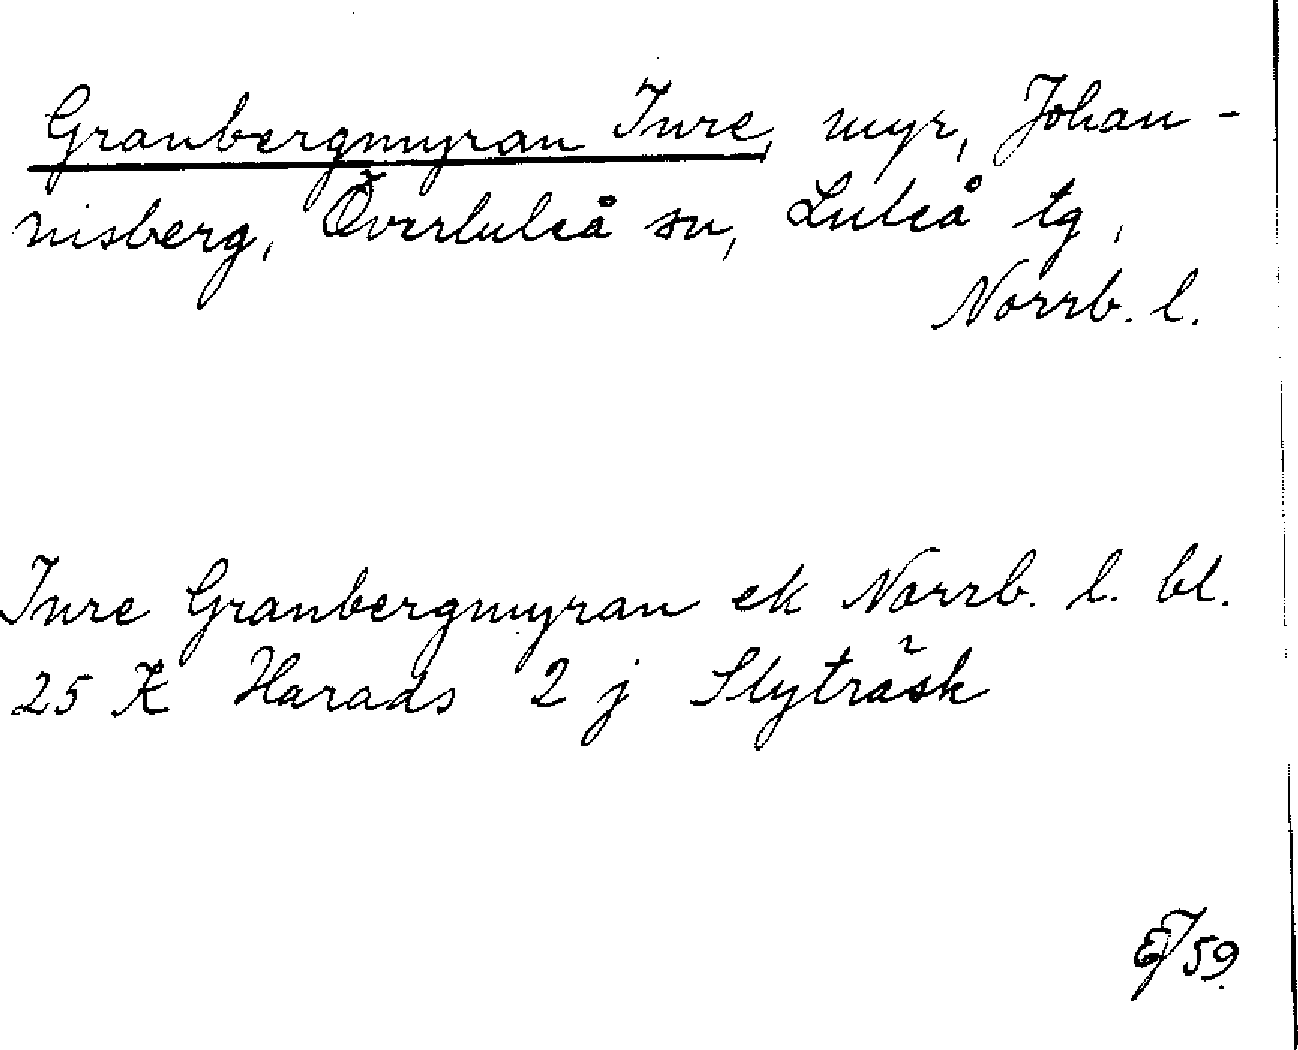 Granbergmyran Inre, myr, Johan-
nisberg, Överluleå sn, Luleå tg,
Norrb. l.
Inre Granbergmyran ek Norrb. l. bl.
25 K Harads 2 j Slyträsk
EJ 59.